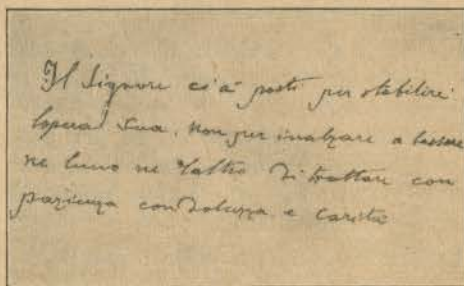 Il Signore ci à posti per stabilire
lopera Sua, non per inalzare a bassare
ne luno ne laltro di trattare con
pazienza con dolcezza e Carità